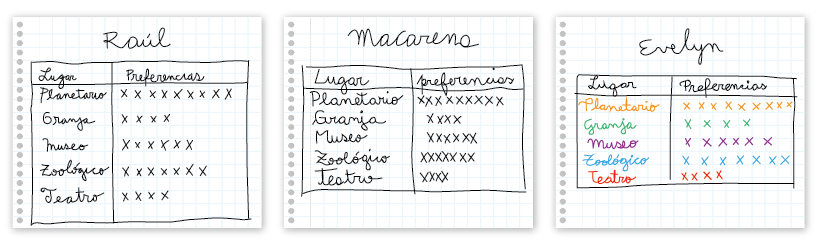 Raúl
Lugar Preferencias
Planetario x x x x x x x x x
Granja x x x x
Museo x x x x x x
Zoológico x x x x x x x
Teatro x x x x
Macarena
Lugar preferencias
Planetario xxxxxxxxx
Granja xxxx
Museo xxxxxx
Zoológico xxxxxxx
Teatro xxxx
Evelyn
Lugar Preferencias
Planetario x x x x x x x x x
Granja x x x x
Museo x x x x x x
Zoológico x x x x x x x
Teatro x x x x